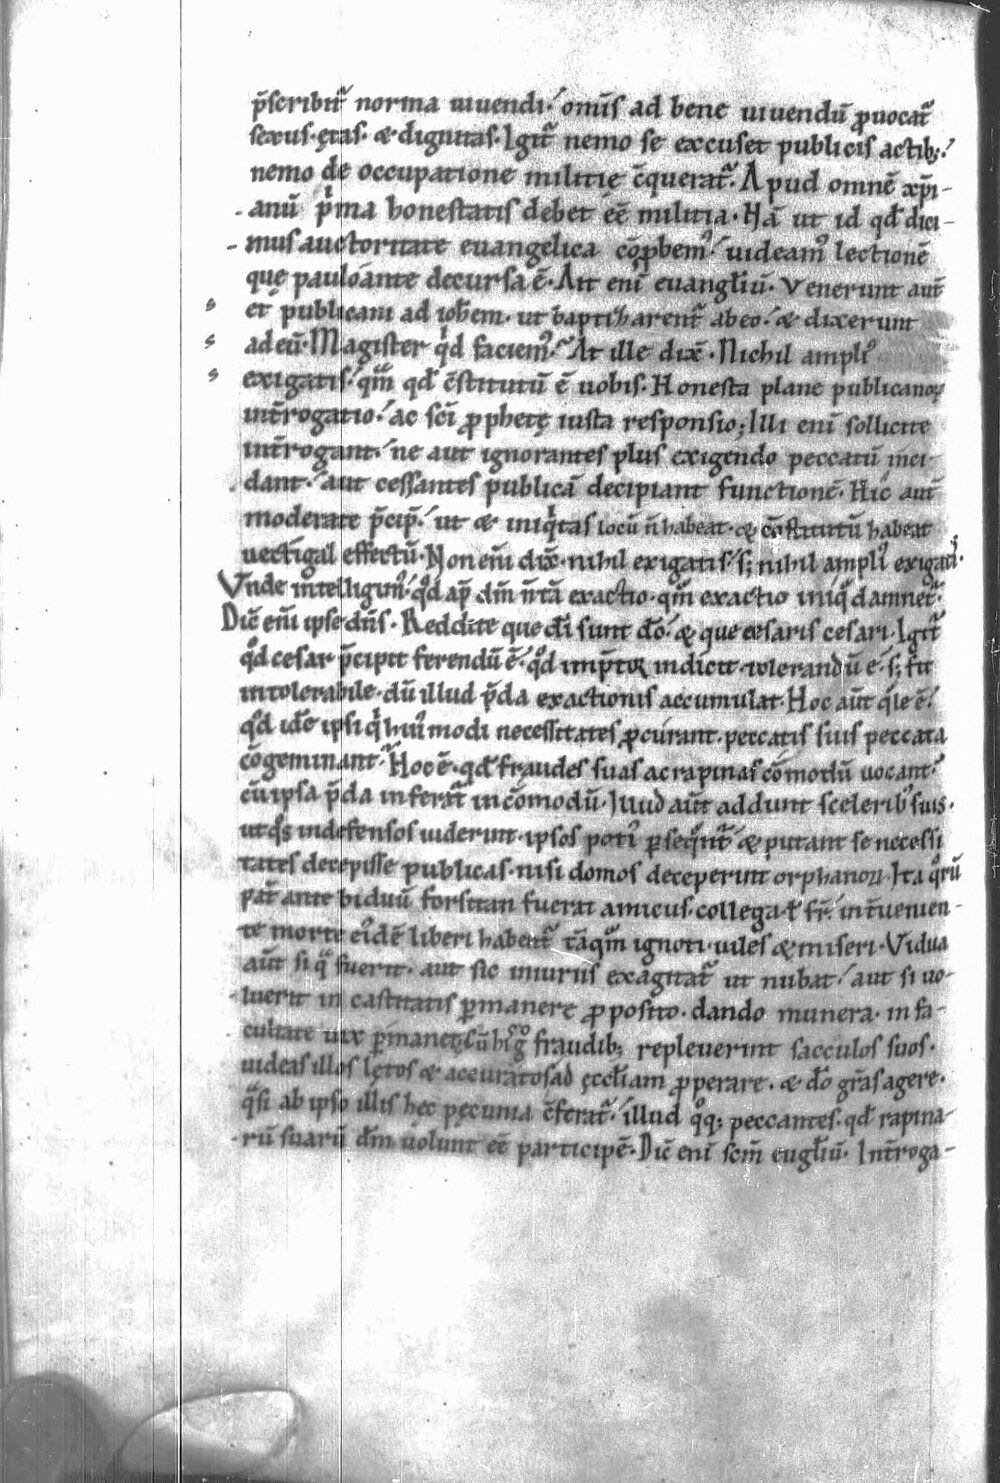 p̄scribit᷑ norma uiuendi· om̄s ad bene uiuendū ꝓuocat᷑
sexus· ętas· & dignitas· Igit᷑ nemo se excuset publicis actib;·
nemo de occupatione militie c̄querat᷑· Apud omnē xp̄i-
anū pͥma honestatis debet eē militia· Nā ut id qđ dici-
mus auctoritate euangelica cōꝓbem᷒· uideam᷒ lectionē
que pauloante decursa ē· Ait eni euangłiū· Venerunt aut̄
et publicani ad ioħem· ut baptizarent᷑ abeo· & dixerunt
adeū· Magister qͥd faciem᷒· At ille dix̄· Nichil ampli᷒
exigatis· qͣm qđ c̄stitutū ē uobis· Honesta plane publicanoꝝ
int̄rogatio· ac sc̄i ꝓphetę iusta responsio; Illi eni sollicite
int̄rogant· ne aut ignorantes plus exigendo peccatū inci-
dant· aut cessantes publicā decipiant functionē· Hic aut̄
moderate p̄cip̄· ut & iniqͥtas locū n̄ habeat· & cōstitutū habeat
uectigal effectū· Non eni dix̄· nihil exigatis· s; nihil ampli᷒ exigatis·
Vnde intelligim᷒· qͦd ap̄ dm̄ n̄ tā exactio· qͣm exactio iniqͣ damnet᷑·
Dic̄ eni ipse dn̄s· Reddite que dī sunt dō· & que cesaris cesari· Igit᷑
qͦd cesar p̄cipit ferendū ē· qͦd imꝑatoꝝ indicit· tolerandū ē· s; fit
intolerabile· dū illud p̄da exactionis accumulat· Hoc aut̄ qͣle ē·
qͦd idē ipsi qͥ hui᷒modi necessitates ꝓcurant· peccatis suis peccata
cōgeminant· Hoc ē· qđ fraudes suas ac rapinas cōmodū uocant·
cū ipsa p̄da inferat᷑ incōmodū· Illud aut̄ addunt scelerib᷒ suis·
ut qͦs indefensos uiderint· ipsos poti᷒ ꝑseqͣnt᷑ & putant se necessi
tates decepisse publicas· nisi domos deceperint orphanoꝝ· Ita qͦrū
pat̄ ante biduū forsitan fuerat amicus· collega· ł fr̄· int̄uenien-
te morte ei᷒dē liberi habent᷑ tāqͣm ignoti· uiles & miseri· Vidua
aut̄ siqͣ fuerit· aut sic iniuriis exagitat᷑ ut nubat· aut si uo-
luerit in castitatis ꝑmanere ꝓposito· dando munera· in fa-
cultate uix ꝑmanet· cū fraudib; repleuerint sacculos suos·
uideas illos lętos & accuratos ad ęccłiam ꝓperare· & dō gr̄as agere·
qͣsi ab ipso illis hęc pęcunia c̄ferat᷑· illud qͦq; peccantes· qđ rapina-
rū suarū dm̄ uolunt eē participē· Dic̄ eni scm̄ eugłiū· Int̄roga-